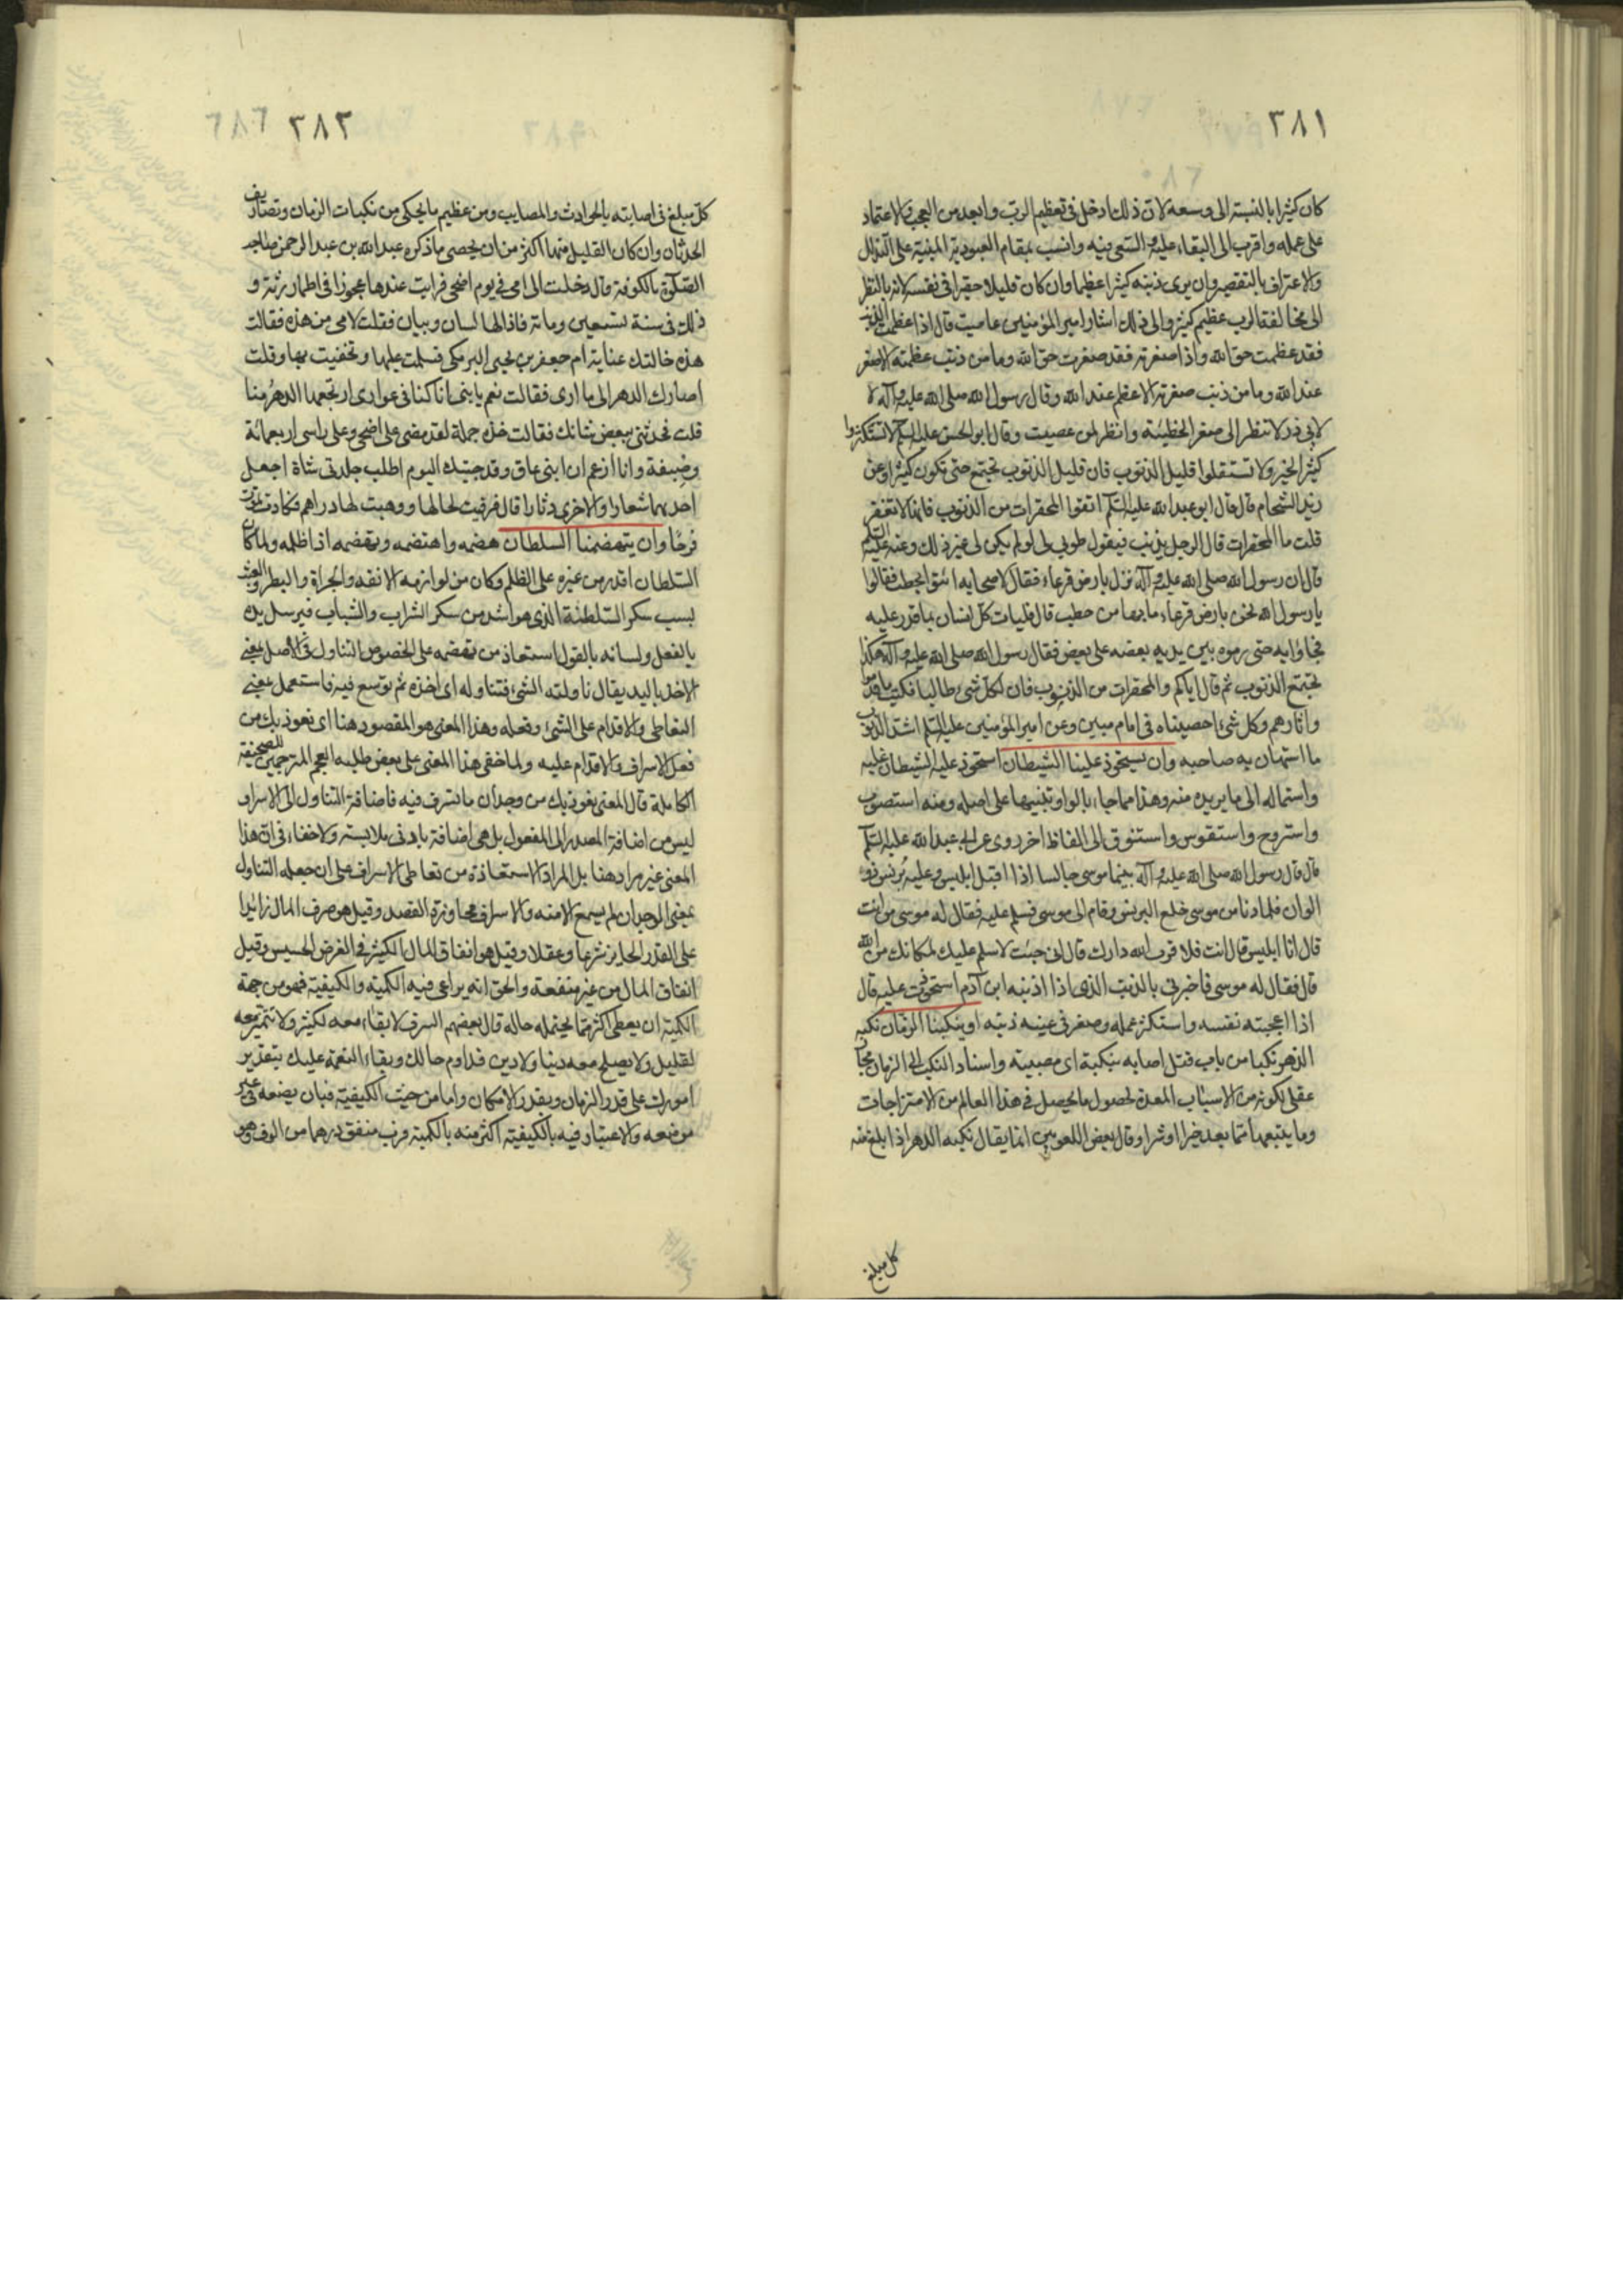 ٣٨١
كان كثيرا بالنسبة الى وسعه لان ذلك ادخل فى تعظيم الرب وابعد من العجب والاعتماد
على عمله واقرب الى البقاء عليه والسعى فيه وانسب بمقام العبودية المبنية على التذلل
والاعتراف بالتقصير وان يرى ذنبه كثيرا عظيما وان كان قليلا حقيرا فى نفسه لانه بالنظر
الى مخالفة الرب عظيم كثير والى ذلك اشار امير المؤمنين عاصيت قال اذا عظمت الذنب
فقد عظمت حق الله واذا صغرته فقد صغرت حق الله وما من ذنب عظمته الا صغر
عند الله وما من ذنب صغرته الا عظم عند الله وقال رسول الله صلى الله عليه وآله لا
لابى ذر لا تنظر الى صغر الخطيئة وانظر لمن عصيت وقال ابو الحسن عليه السلام لا تستكثروا
كثير الخير ولا تستقلوا قليل الذنوب فان قليل الذنوب تجتمع حتى تكون كثيرا وعن
زيد الشحام قال قال ابو عبدالله عليه السلام اتقوا المحقرات من الذنوب فانها لا تغفر
قلت ما المحقرات قال الرجل يذنب فيقول طوبى لى لو لم يكن لى غير ذلك وعنه عليه السلام
قال ان رسول الله صلى الله عليه وآله نزل بارض قرعاء فقال لاصحابه ائتوا بحطب فقالوا
يا رسول الله نحن بارض قرعاء ما بها من حطب قال فليات كل انسان بما قدر عليه
فجاؤا به حتى رموه بين يديه بعضه على بعض فقال رسول الله صلى الله عليه وآله هكذا
تجتمع الذنوب ثم قال اياكم والمحقرات من الذنوب فان لكل شئ طالبا يكتب ما قدموا
واثارهم وكل شئ احصيناه فى امام مبين وعن امير المؤمنين عليه السلام اشد الذنوب
ما استهان به صاحبه وان يستحوذ علينا الشيطان استحوذ عليه الشيطان غلبه
واستماله الى ما يريده منه وهذا مما جاء بالواو تنبيها على اصله ومنه استصوب
واستروح واستقوس واستنوق الى الفاظ اخر روى عن ابى عبدالله عليه السلام
قال قال رسول الله صلى الله عليه وآله بينما موسى جالسا اذا اقبل ابليس وعليه برنس ذو
الوان فلما دنا من موسى خلع البرنس وقام الى موسى فسلم عليه فقال له موسى من انت
قال انا ابليس قال انت فلا قرب الله دارك قال انى جئت لاسلم عليك لمكانك من الله
قال فقال له موسى فاخبرنى بالذنب الذى اذا اذنبه ابن آدم استحوذت عليه قال
اذا اعجبته نفسه واستكثر عمله وصغر فى عينه ذنبه او ينكبنا الزمان نكبه
الدهر نكبا من باب قتل اصابه بنكبة اى مصيبة واسناد النكب الى الزمان مجاز
عقلى لكونه من الاسباب المعدة لحصول ما يحصل فى هذا العالم من الامتزاجات
وما يتبعها مما يعد خيرا او شرا وقال بعض اللغويين انما يقال نكبه الدهر اذا بلغ منه
كل مبلغ
٣٨٢ ٦٨٦
كل مبلغ فى اصابته بالحوادث والمصايب ومن عظيم ما يحكى من نكبات الزمان وتصاريف
الحدثان وان كان القليل منها اكثر من ان يحصى ما ذكره عبدالله بن عبد الرحمن صاحب
الصلوة بالكوفة قال دخلت الى امى فى يوم اضحى فرايت عندها عجوزا فى اطمار رثة و
ذلك فى سنة تسعين ومائة فاذا لها لسان وبيان فقلت لامى من هذه فقالت
هذه خالتك عناية ام جعفر بن يحيى البرمكى فسلمت عليها وتحفيت بها وقلت
اصارك الدهر الى ما ارى فقالت نعم يا بنى انا كنا فى عوارى ارتجعها الدهر منا
قلت فحدثنى ببعض شانك فقالت خذه جملة لقد مضى على اضحى وعلى راسى اربعمائة
وصيفة وانا ازعم ان ابنى عاق وقد جيتك اليوم اطلب جلدتى شاة اجعل
احديهما شعارا والاخرى دثارا قال فرقيت لحالها ووهبت لها دراهم فكادت تموت
فرحا وان يتهضمنا السلطان هضمه واهتضمه وتهضمه اذا ظلمه ولما كان
السلطان اقدر من غيره على الظلم وكان من لوازمه الانفة والجراة والبطر
بسبب سكر السلطنة الذى هو اشد من سكر الشراب والشباب فيرسل يده
بالفعل ولسانه بالقول استعاذ من تهضمه على الخصوص التناول فى الاصل بمعنى
الاخذ باليد يقال ناولته الشئ فتناوله اى اخذه ثم توسع فيه فاستعمل بمعنى
التعاطى والاقدام على الشئ وفعله وهذا المعنى هو المقصود هنا اى نعوذ بك من
فعل الاسراف والاقدام عليه ولما خفى هذا المعنى على بعض طلبة العجم المترجمين للصحيفة
الكاملة قال المعنى نعوذ بك من وجدان ما نسرف فيه فاضافة التناول الى الاسراف
ليس من اضافة المصدر الى المفعول بل هى اضافة بادنى ملابسة ولا خفاء فى ان هذا
المعنى غير مراد هنا بل المراد الاستعاذة من تعاطى الاسراف على ان جعله التناول
بمعنى الوجدان لم يسمع الا منه والاسراف مجاوزة القصد وقيل هو صرف المال زائدا
على القدر الجايز شرعا وعقلا وقيل هو انفاق المال الكثير فى الغرض الخسيس وقيل
انفاق المال من غير منفعة والحق انه يراعى فيه الكمية والكيفية فهو من جهة
الكمية ان يعطى اكثر مما يحتمله حاله قال بعضهم السرف لا بقاء معه لكثير ولا تثمير معه
لقليل ولا يصلح معه دنيا ولا دين فداوم حالك وبقاء النعمة عليك بتقدير
امورك على قدر الزمان وبقدر الامكان واما من حيث الكيفية فبان يضعه فى غير
موضعه والاعتبار فيه بالكيفية اكثر منه بالكمية فرب منفق درهما من الوف وهو